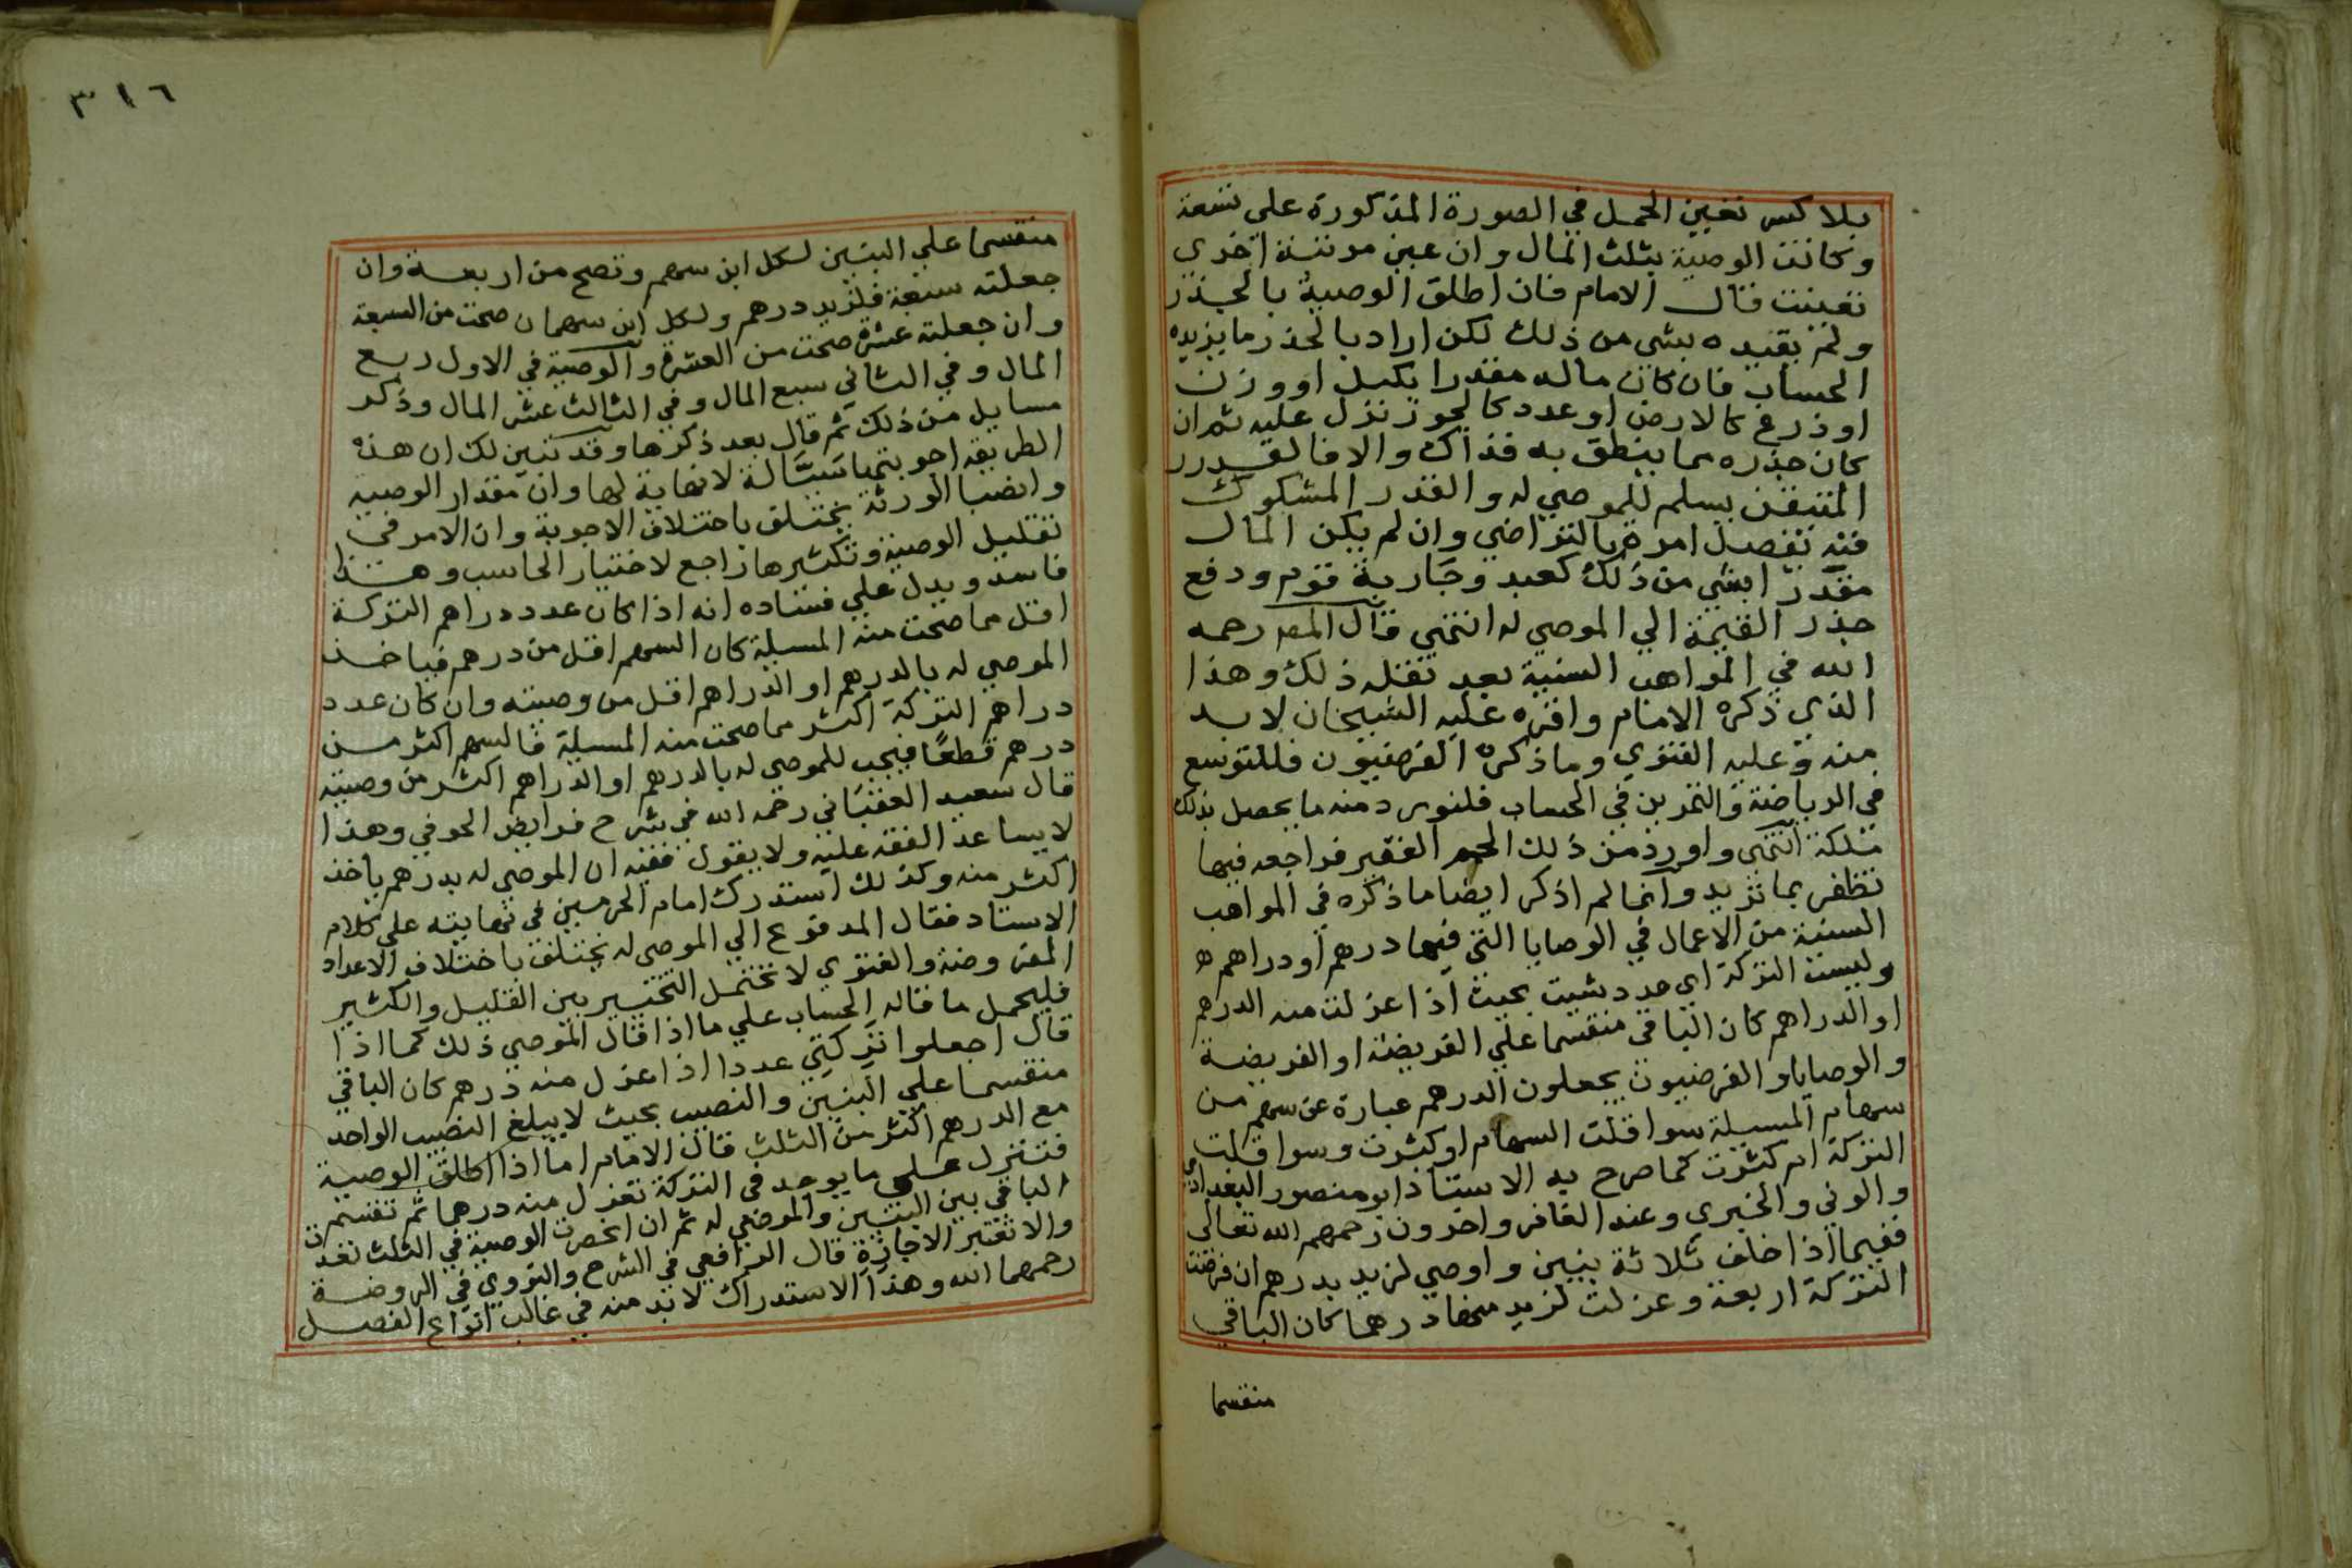 بلا كسر تعين الحمل في الصورة المذكورة علي تسعة
وكانت الوصية بثلث المال وان عين مرتبة اخري
تعينت قال الامام فان اطلق الوصية بالجذر
ولم يقيده بشي من ذلك لكن اراد بالجذر ما يريده
الحساب فان كان ماله مقدرا بكيل او وزن
او ذرع كالارض او عدد كالجوز نزل عليه ثم ان
كان جذره مما ينطق به فذاك والا فالقدر
المتيقن يسلم للموصي له والقدر المشكوك
فيه يفصل امره بالتراضي وان لم يكن المال
مقدرا بشي من ذلك كعبد وجارية قوم ودفع
جذر القيمة الي الموصي له انتهي قال المص رحمه
الله في المواهب السنية بعد نقله ذلك وهذا
الذي ذكره الامام واقره عليه الشيخان لا بد
منه وعليه الفتوي وما ذكره الفرضيون فللتوسع
في الرياضة والتمرين في الحساب فلنورد منه ما يحصل بذلك
ملكة انتهي واورد من ذلك الجم الغفير فراجعه فيها
تظفر بما تريد وانما لم اذكر ايضا ما ذكره في المواهب
السنية من الاعمال في الوصايا التي فيها درهم او دراهم
وليست التركة اي عدد شيت بحيث اذا عزلت منه الدرهم
او الدراهم كان الباقي منقسما علي الفريضة او الفريضة
والوصايا والفرضيون يجعلون الدرهم عبارة عن سهم من
سهام المسيلة سوا قلت السهام او كثرت وسوا قلت
التركة ام كثرت كما صرح به الاستاذ ابو منصور البغدادي
والوني والخبري وعند الغافر واخرون رحمهم الله تعالى
ففيما اذا خلف ثلاثة بنين واوصي لزيد بدرهم ان فرضت
التركة اربعة وعزلت لزيد منها درهما كان الباقي
منقسما
٣١٦
منقسما علي البنين لكل ابن سهم وتصح من اربعة وان
جعلته سبعة فلزيد درهم ولكل ابن سهمان صحت من السبعة
وان جعلته عشرة صحت من العشرة والوصية في الاول ربع
المال وفي الثاني سبع المال وفي الثالث عشر المال وذكر
مسايل من ذلك ثم قال بعد ذكرها وقد تبين لك ان هذه
الطريقة اجوبتها سيالة لا نهاية لها وان مقدار الوصية
وانصبا الورثة يختلف باختلاف الاجوبة وان الامر في
تقليل الوصية وتكثيرها راجع لاختيار الحاسب وهذا
فاسد ويدل علي فساده انه اذا كان عدد دراهم التركة
اقل مما صحت منه المسيلة كان السهم اقل من درهم فياخذ
الموصي له بالدرهم او الدراهم اقل من وصيته وان كان عدد
دراهم التركة اكثر مما صحت منه المسيلة فالسهم اكثر من
درهم قطعا فيجب للموصي له بالدرهم او الدراهم اكثر من وصيته
قال سعيد العقباني رحمه الله في شرح فرايض الحوفي وهذا
لا يساعد الفقه عليه ولا يقول فقيه ان الموصي له بدرهم ياخذ
اكثر منه وكذلك استدرك امام الحرمين في نهايته علي كلام
الاستاد فقال المدفوع الي الموصي له يختلف باختلاف الاعداد
المفروضة والفتوي لا تحتمل التخيير بين القليل والكثير
فليحمل ما قاله الحساب علي ما اذا قال الموصي ذلك كما اذا
قال اجعلوا تركتي عددا اذا عزل منه درهم كان الباقي
منقسما علي البنين والنصيب بحيث لا يبلغ النصيب الواحد
مع الدرهم اكثر من الثلث قال الامام اما اذا اطلق الوصية
فتنزل علي ما يوجد في التركة تعزل منه درهما ثم تقسم
الباقي بين البنين والموصي له ثم ان انحصرت الوصية في الثلث نفذت
والا تعتبر الاجازة قال الرافعي في الشرح والنووي في الروضة
رحمهما الله وهذا الاستدراك لا بد منه في غالب انواع الفصل